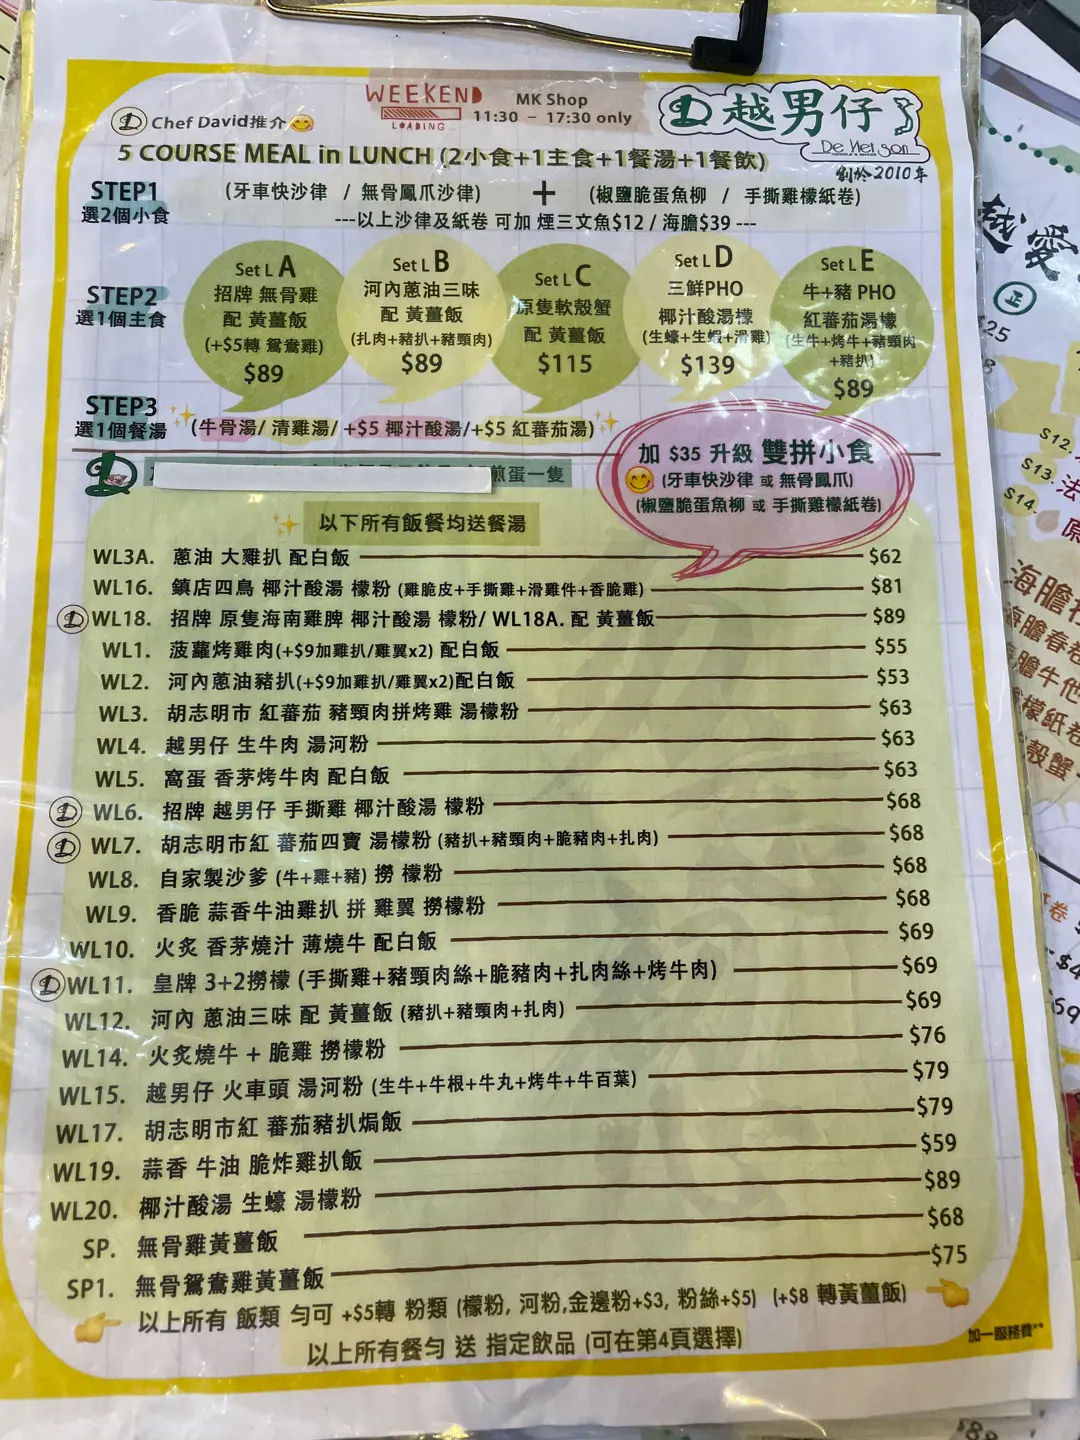 WEEKEND
LOADING...
MK Shop
11:30 - 17:30 only
越男仔
De Nei Son
創於2010年
Chef David推介
5 COURSE MEAL in LUNCH (2小食+1主食+1餐湯+1餐飲)
STEP1
選2個小食
(牙車快沙律 / 無骨鳳爪沙律) + (椒鹽脆蛋魚柳 / 手撕雞檬紙卷)
---以上沙律及紙卷 可加 煙三文魚$12 / 海膽$39 ---
STEP2
選1個主食
Set L A
招牌 無骨雞
配 黃薑飯
(+$5轉 鴛鴦雞)
$89
Set L B
河內蔥油三味
配 黃薑飯
(扎肉+豬扒+豬頸肉)
$89
Set L C
原隻軟殼蟹
配 黃薑飯
$115
Set L D
三鮮PHO
椰汁酸湯檬
(生蠔+生蝦+滑雞)
$139
Set L E
牛+豬 PHO
紅蕃茄湯檬
(生牛+烤牛+豬頸肉
+豬扒)
$89
STEP3
選1個餐湯
(牛骨湯/ 清雞湯/ +$5 椰汁酸湯/+$5 紅蕃茄湯)
加 $35 升級 雙拼小食
(牙車快沙律 或 無骨鳳爪)
(椒鹽脆蛋魚柳 或 手撕雞檬紙卷)
煎蛋一隻
以下所有飯餐均送餐湯
WL3A. 蔥油 大雞扒 配白飯 $62
WL16. 鎮店四鳥 椰汁酸湯 檬粉 (雞脆皮+手撕雞+滑雞件+香脆雞) $81
WL18. 招牌 原隻海南雞脾 椰汁酸湯 檬粉/ WL18A. 配 黃薑飯 $89
WL1. 菠蘿烤雞肉(+$9加雞扒/雞翼x2) 配白飯 $55
WL2. 河內蔥油豬扒(+$9加雞扒/雞翼x2)配白飯 $53
WL3. 胡志明市 紅蕃茄 豬頸肉拼烤雞 湯檬粉 $63
WL4. 越男仔 生牛肉 湯河粉 $63
WL5. 窩蛋 香茅烤牛肉 配白飯 $63
WL6. 招牌 越男仔 手撕雞 椰汁酸湯 檬粉 $68
WL7. 胡志明市紅 蕃茄四寶 湯檬粉 (豬扒+豬頸肉+脆豬肉+扎肉) $68
WL8. 自家製沙爹 (牛+雞+豬) 撈 檬粉 $68
WL9. 香脆 蒜香牛油雞扒 拼 雞翼 撈檬粉 $68
WL10. 火炙 香茅燒汁 薄燒牛 配白飯 $69
WL11. 皇牌 3+2撈檬 (手撕雞+豬頸肉絲+脆豬肉+扎肉絲+烤牛肉) $69
WL12. 河內 蔥油三味 配 黃薑飯 (豬扒+豬頸肉+扎肉) $69
WL14. 火炙燒牛 + 脆雞 撈檬粉 $76
WL15. 越男仔 火車頭 湯河粉 (生牛+牛根+牛丸+烤牛+牛百葉) $79
WL17. 胡志明市紅 蕃茄豬扒焗飯 $79
WL19. 蒜香 牛油 脆炸雞扒飯 $59
WL20. 椰汁酸湯 生蠔 湯檬粉 $89
SP. 無骨雞黃薑飯 $68
SP1. 無骨鴛鴦雞黃薑飯 $75
以上所有 飯類 勻可 +$5轉 粉類 (檬粉, 河粉,金邊粉+$3, 粉絲+$5) (+$8 轉黃薑飯)
以上所有餐勻 送 指定飲品 (可在第4頁選擇)
加一服務費**
越愛
正
$12.
$13.
$14.
海膽
海膽春卷
膽牛他
檬紙卷
殼蟹